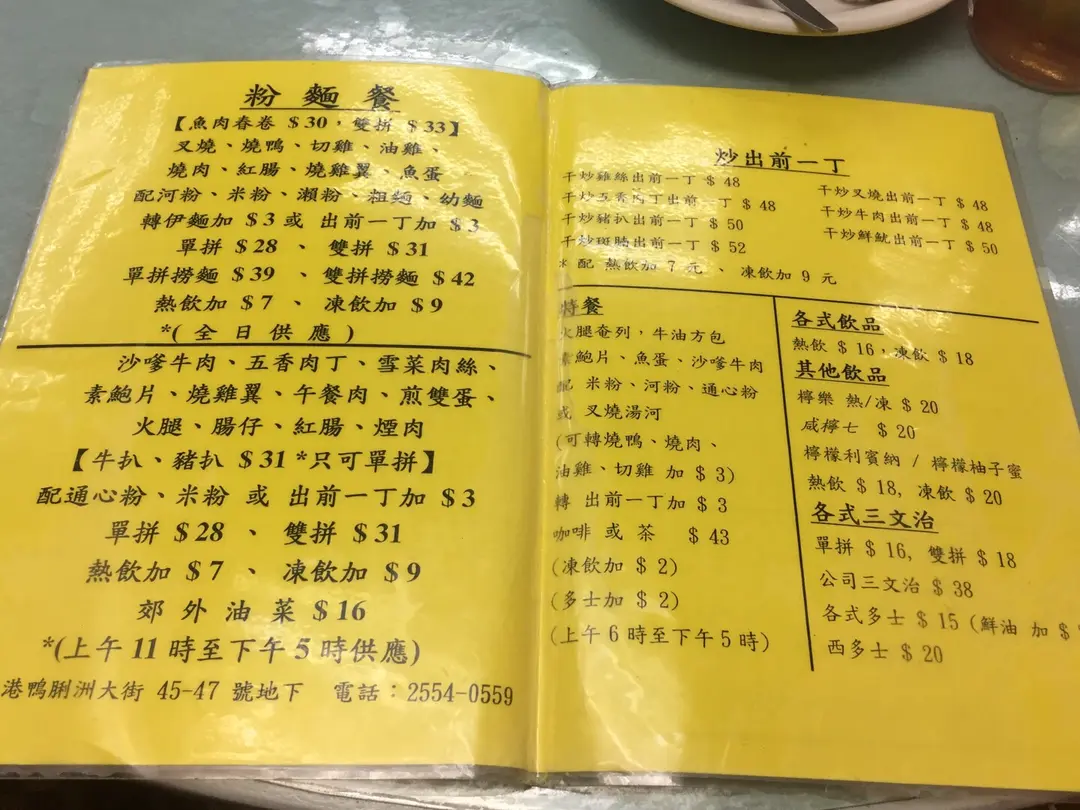 粉麵餐
【魚肉春卷 $30, 雙拼 $33】
叉燒、燒鴨、切雞、油雞、
燒肉、紅腸、燒雞翼、魚蛋
配河粉、米粉、瀨粉、粗麵、幼麵
轉伊麵加 $3 或 出前一丁加 $3
單拼 $28 、 雙拼 $31
單拼撈麵 $39 、 雙拼撈麵 $42
熱飲加 $7 、 凍飲加 $9
*( 全日供應 )
沙嗲牛肉、五香肉丁、雪菜肉絲、
素鮑片、燒雞翼、午餐肉、煎雙蛋、
火腿、腸仔、紅腸、煙肉
【牛扒、豬扒 $31 *只可單拼】
配通心粉、米粉 或 出前一丁加 $3
單拼 $28 、 雙拼 $31
熱飲加 $7 、 凍飲加 $9
郊外油菜 $16
*(上午 11 時至下午 5 時供應)
港鴨脷洲大街 45-47 號地下 電話：2554-0559
炒出前一丁
干炒雞絲出前一丁 $ 48
干炒五香肉丁出前一丁 $ 48
干炒豬扒出前一丁 $ 50
干炒斑腩出前一丁 $ 52
干炒叉燒出前一丁 $ 48
干炒牛肉出前一丁 $ 48
干炒鮮魷出前一丁 $ 50
* 配 熱飲加 7 元 、 凍飲加 9 元
特餐
火腿奄列, 牛油方包
素鮑片、魚蛋、沙嗲牛肉
配 米粉、河粉、通心粉
或 叉燒湯河
(可轉燒鴨、燒肉、
油雞、切雞 加 $ 3)
轉 出前一丁加 $ 3
咖啡 或 茶 $ 43
(凍飲加 $ 2)
(多士加 $ 2)
(上午 6 時至下午 5 時)
各式飲品
熱飲 $ 16, 凍飲 $ 18
其他飲品
檸樂 熱/凍 $ 20
咸檸七 $ 20
檸檬利賓納 / 檸檬柚子蜜
熱飲 $ 18, 凍飲 $ 20
各式三文治
單拼 $ 16, 雙拼 $ 18
公司三文治 $ 38
各式多士 $ 15 (鮮油 加 $
西多士 $ 20